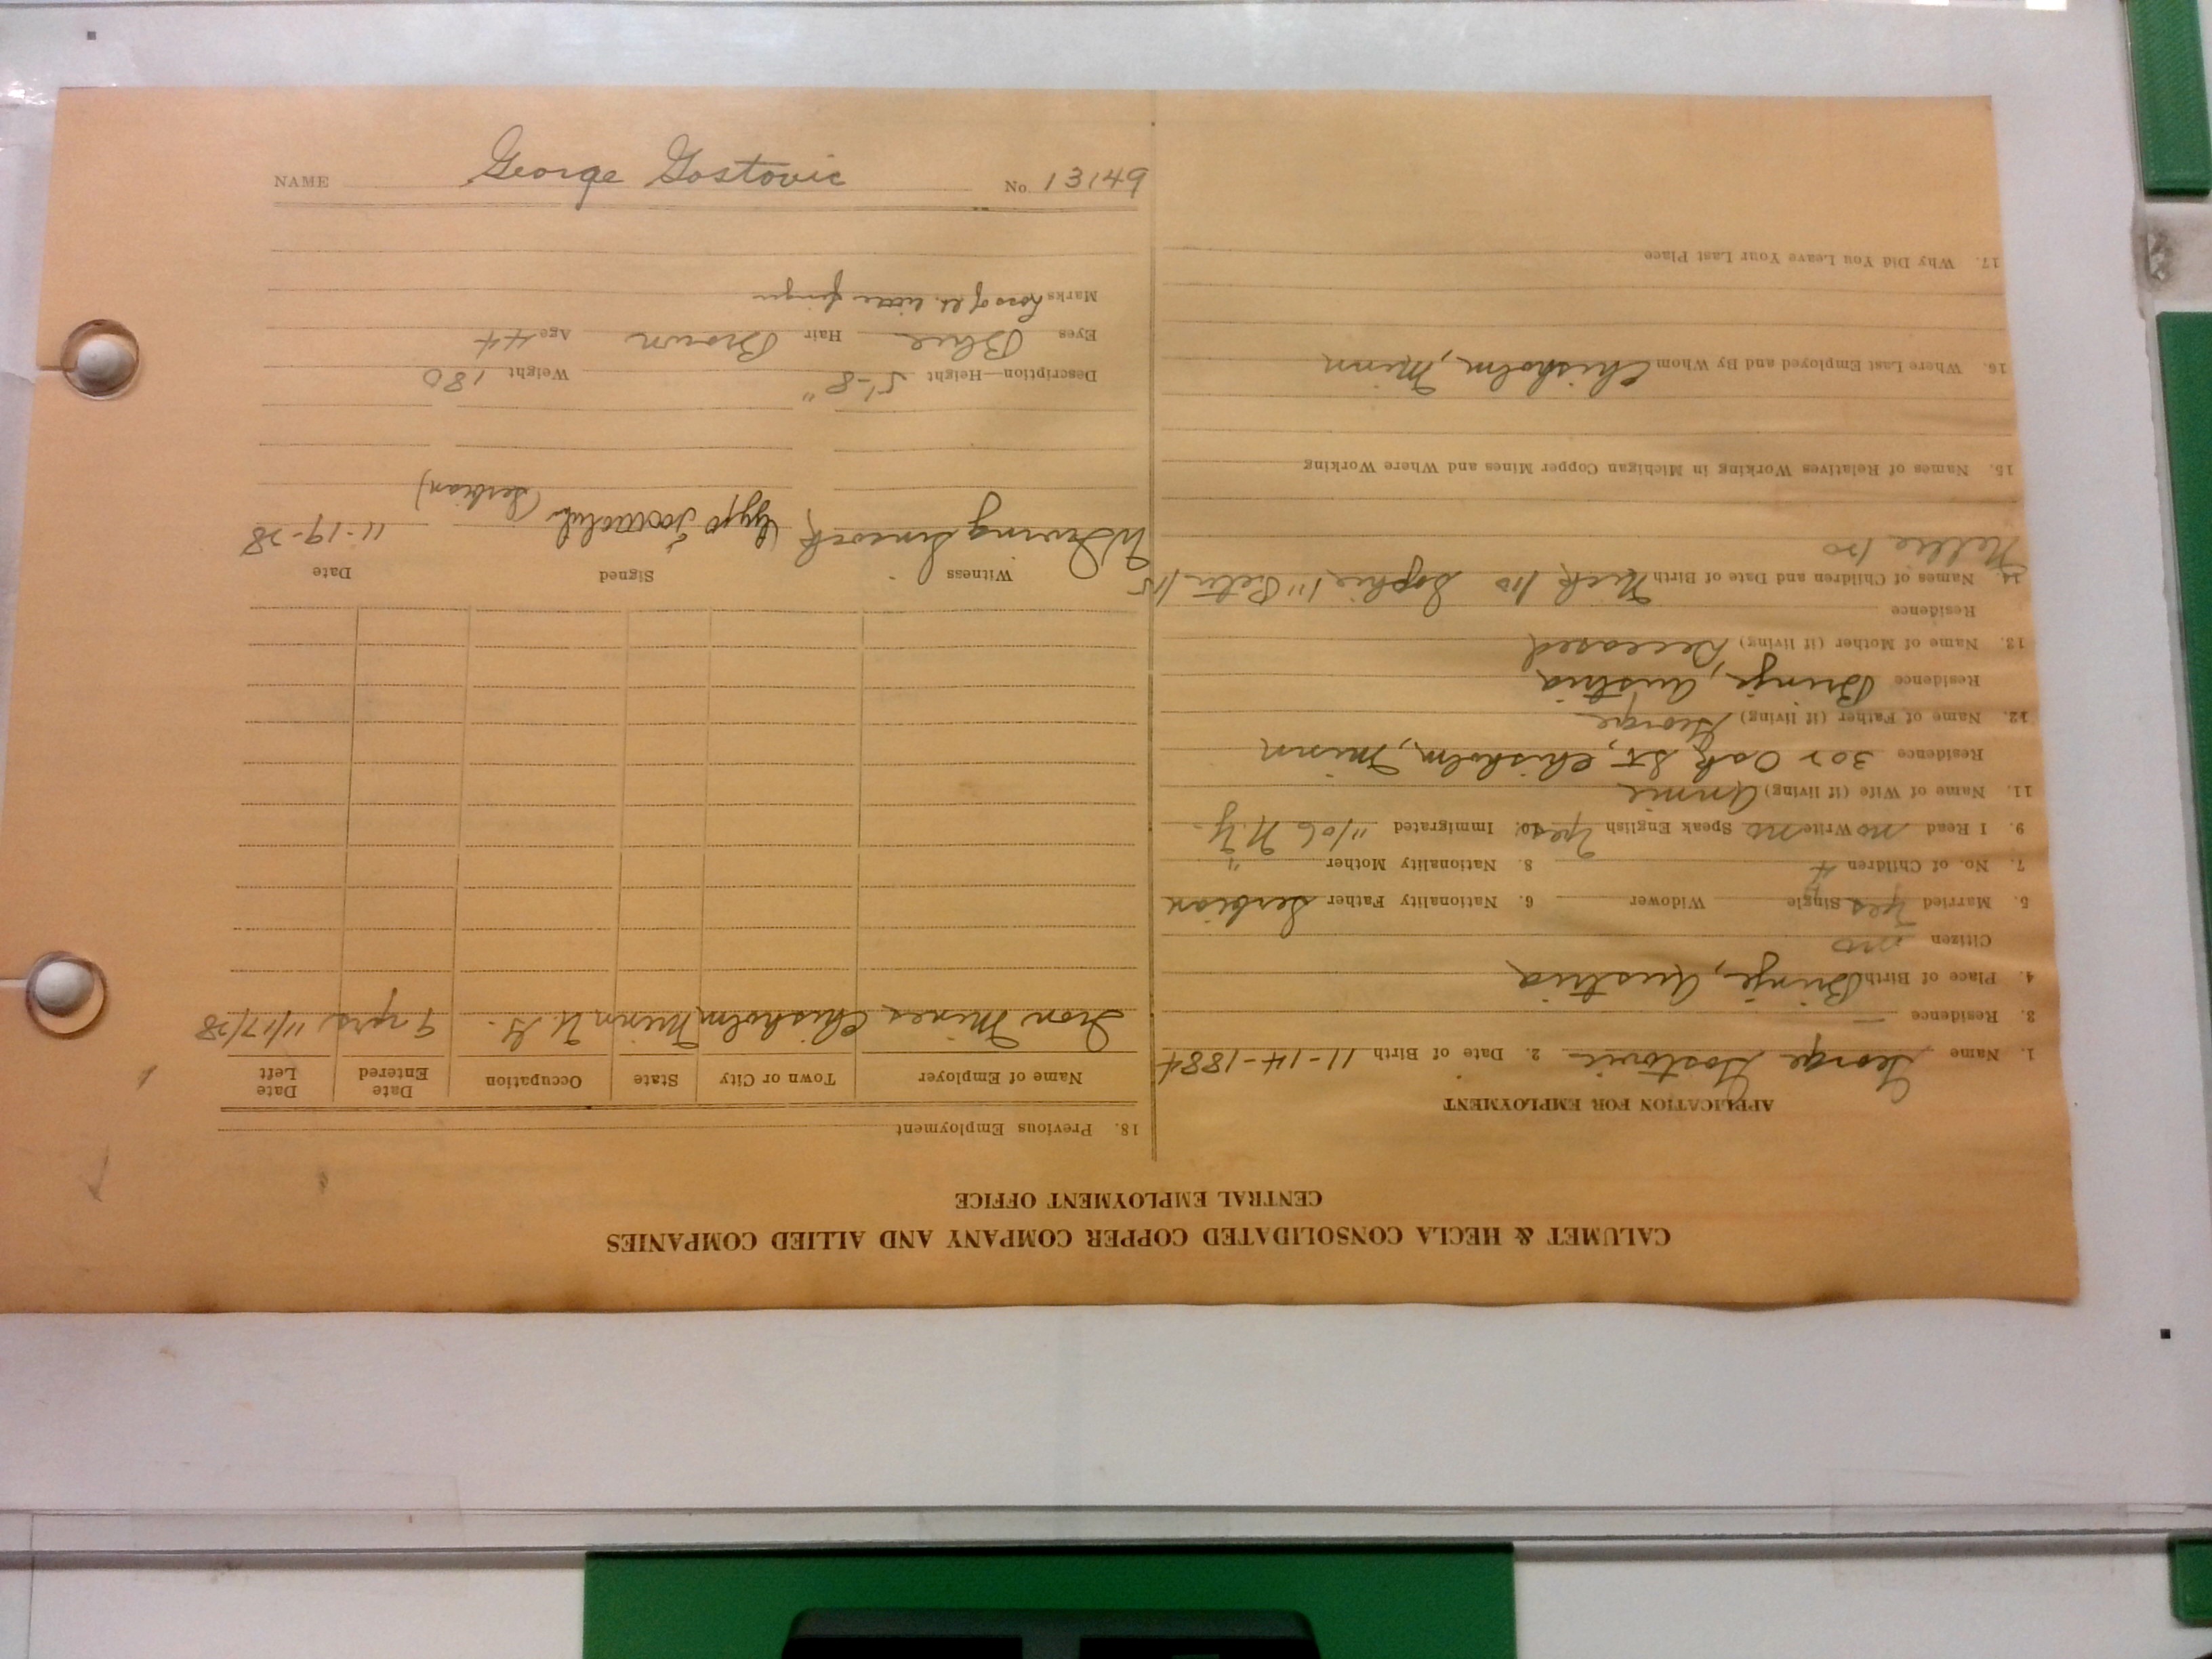 NAME George Gostovic No. 13149
CALUMET & HECLA CONSOLIDATED COPPER COMPANY AND ALLIED COMPANIES
CENTRAL EMPLOYMENT OFFICE
APPLICATION FOR EMPLOYMENT
1. Name George Gostovic 2. Date of Birth 11-14-1884
3. Residence —
4. Place of Birth Brinje, Austria
Citizen no
5. Married yes Single Widower 6. Nationality Father Serbian
7. No. of Children 4 8. Nationality Mother "
9. I Read no Write no Speak English yes 10. Immigrated "/06 N.Y.
11. Name of Wife (if living) Annie
Residence 302 Oak St, Chisholm, Minn
12. Name of Father (if living) George
Residence Brinje, Austria
13. Name of Mother (if living) Deceased
Residence
14. Names of Children and Date of Birth Nick Sophie Peter
Nellie
15. Names of Relatives Working in Michigan Copper Mines and Where Working
16. Where Last Employed and By Whom Chisholm, Minn
17. Why Did You Leave Your Last Place
18. Previous Employment
Name of Employer Town or City State Occupation Date Entered Date Left
Iron Mines Chisholm Minn U.G. 9 yrs 11/17/28
Witness Signed Date
W Irving (Serbian) 11-19-28
Description—Height 5'-8" Weight 180
Eyes Blue Hair Brown Age 44
Marks Loss of lt. little finger